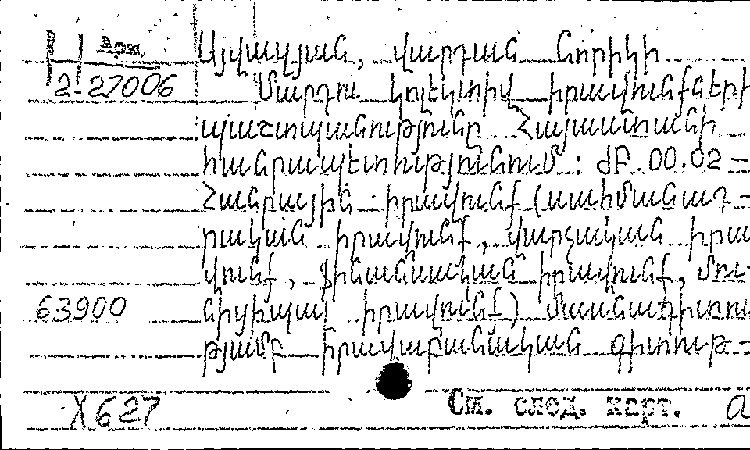 Այվազյան, Վարդան Նորիկի
2-27006 Մարդու կոլեկտիվ իրավունքների
պաշտպանությունը Հայաստանի
հանրապետությունում : ԺԲ. 00.02 –
Հանրային իրավունք (սահմանադ-
րական իրավունք, վարչական իրա
վունք, ֆինանսական իրավունք, մու-
63900 նիցիպալ իրավունք) մասնագիտու
թյամբ իրավաբանական գիտութ-
X627 См. след. карт.